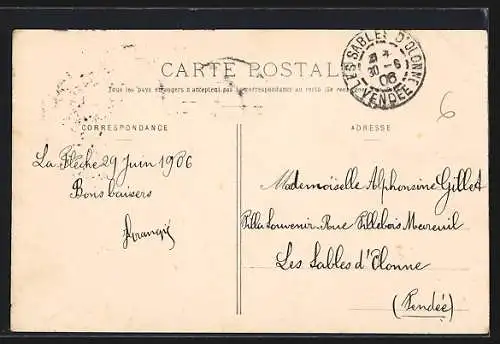 CARTE POSTALE
Tous les pays étrangers n'acceptent pas la correspondance au recto (Se
CORRESPONDANCE
ADRESSE
LES SABLES D'OLONNE
30 -6
06
VENDÉE
6
La Flèche 29 Juin 1906
Bons baisers
Mademoiselle Alphonsine Gillet
Villa Souvenir Rue Villebois Mareuil
Les Sables d'Olonne
(Vendée)